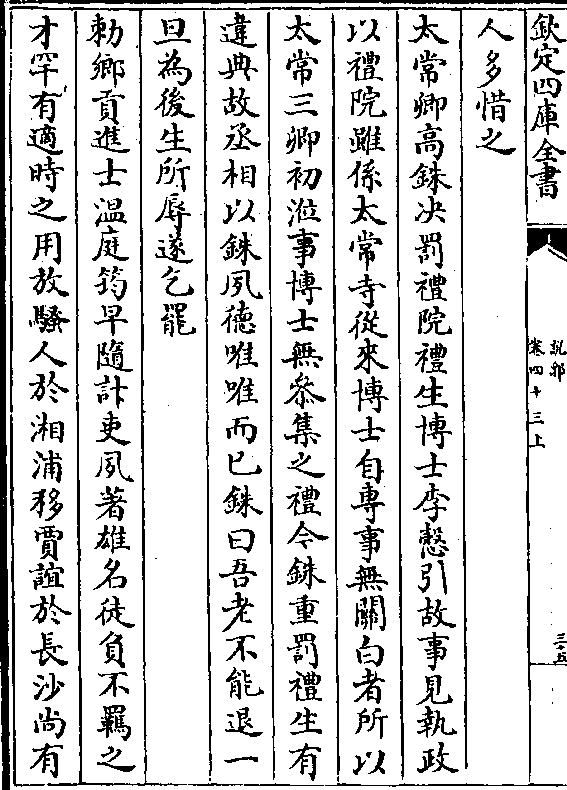 欽定四庫全書
說郛
卷四十三上
三十五
人多惜之
太常卿高銖决罰禮院禮生博士李慤引故事見執政
以禮院雖係太常寺從來博士自專事無關白者所以
太常三卿初涖事博士無叅集之禮今銖重罰禮生有
違典故丞相以銖夙德唯唯而已銖曰吾老不能退一
旦為後生所辱遂乞罷
勅鄉貢進士温庭筠早隨計吏夙著雄名徒負不羈之
才罕有適時之用放騷人於湘浦移賈誼於長沙尚有